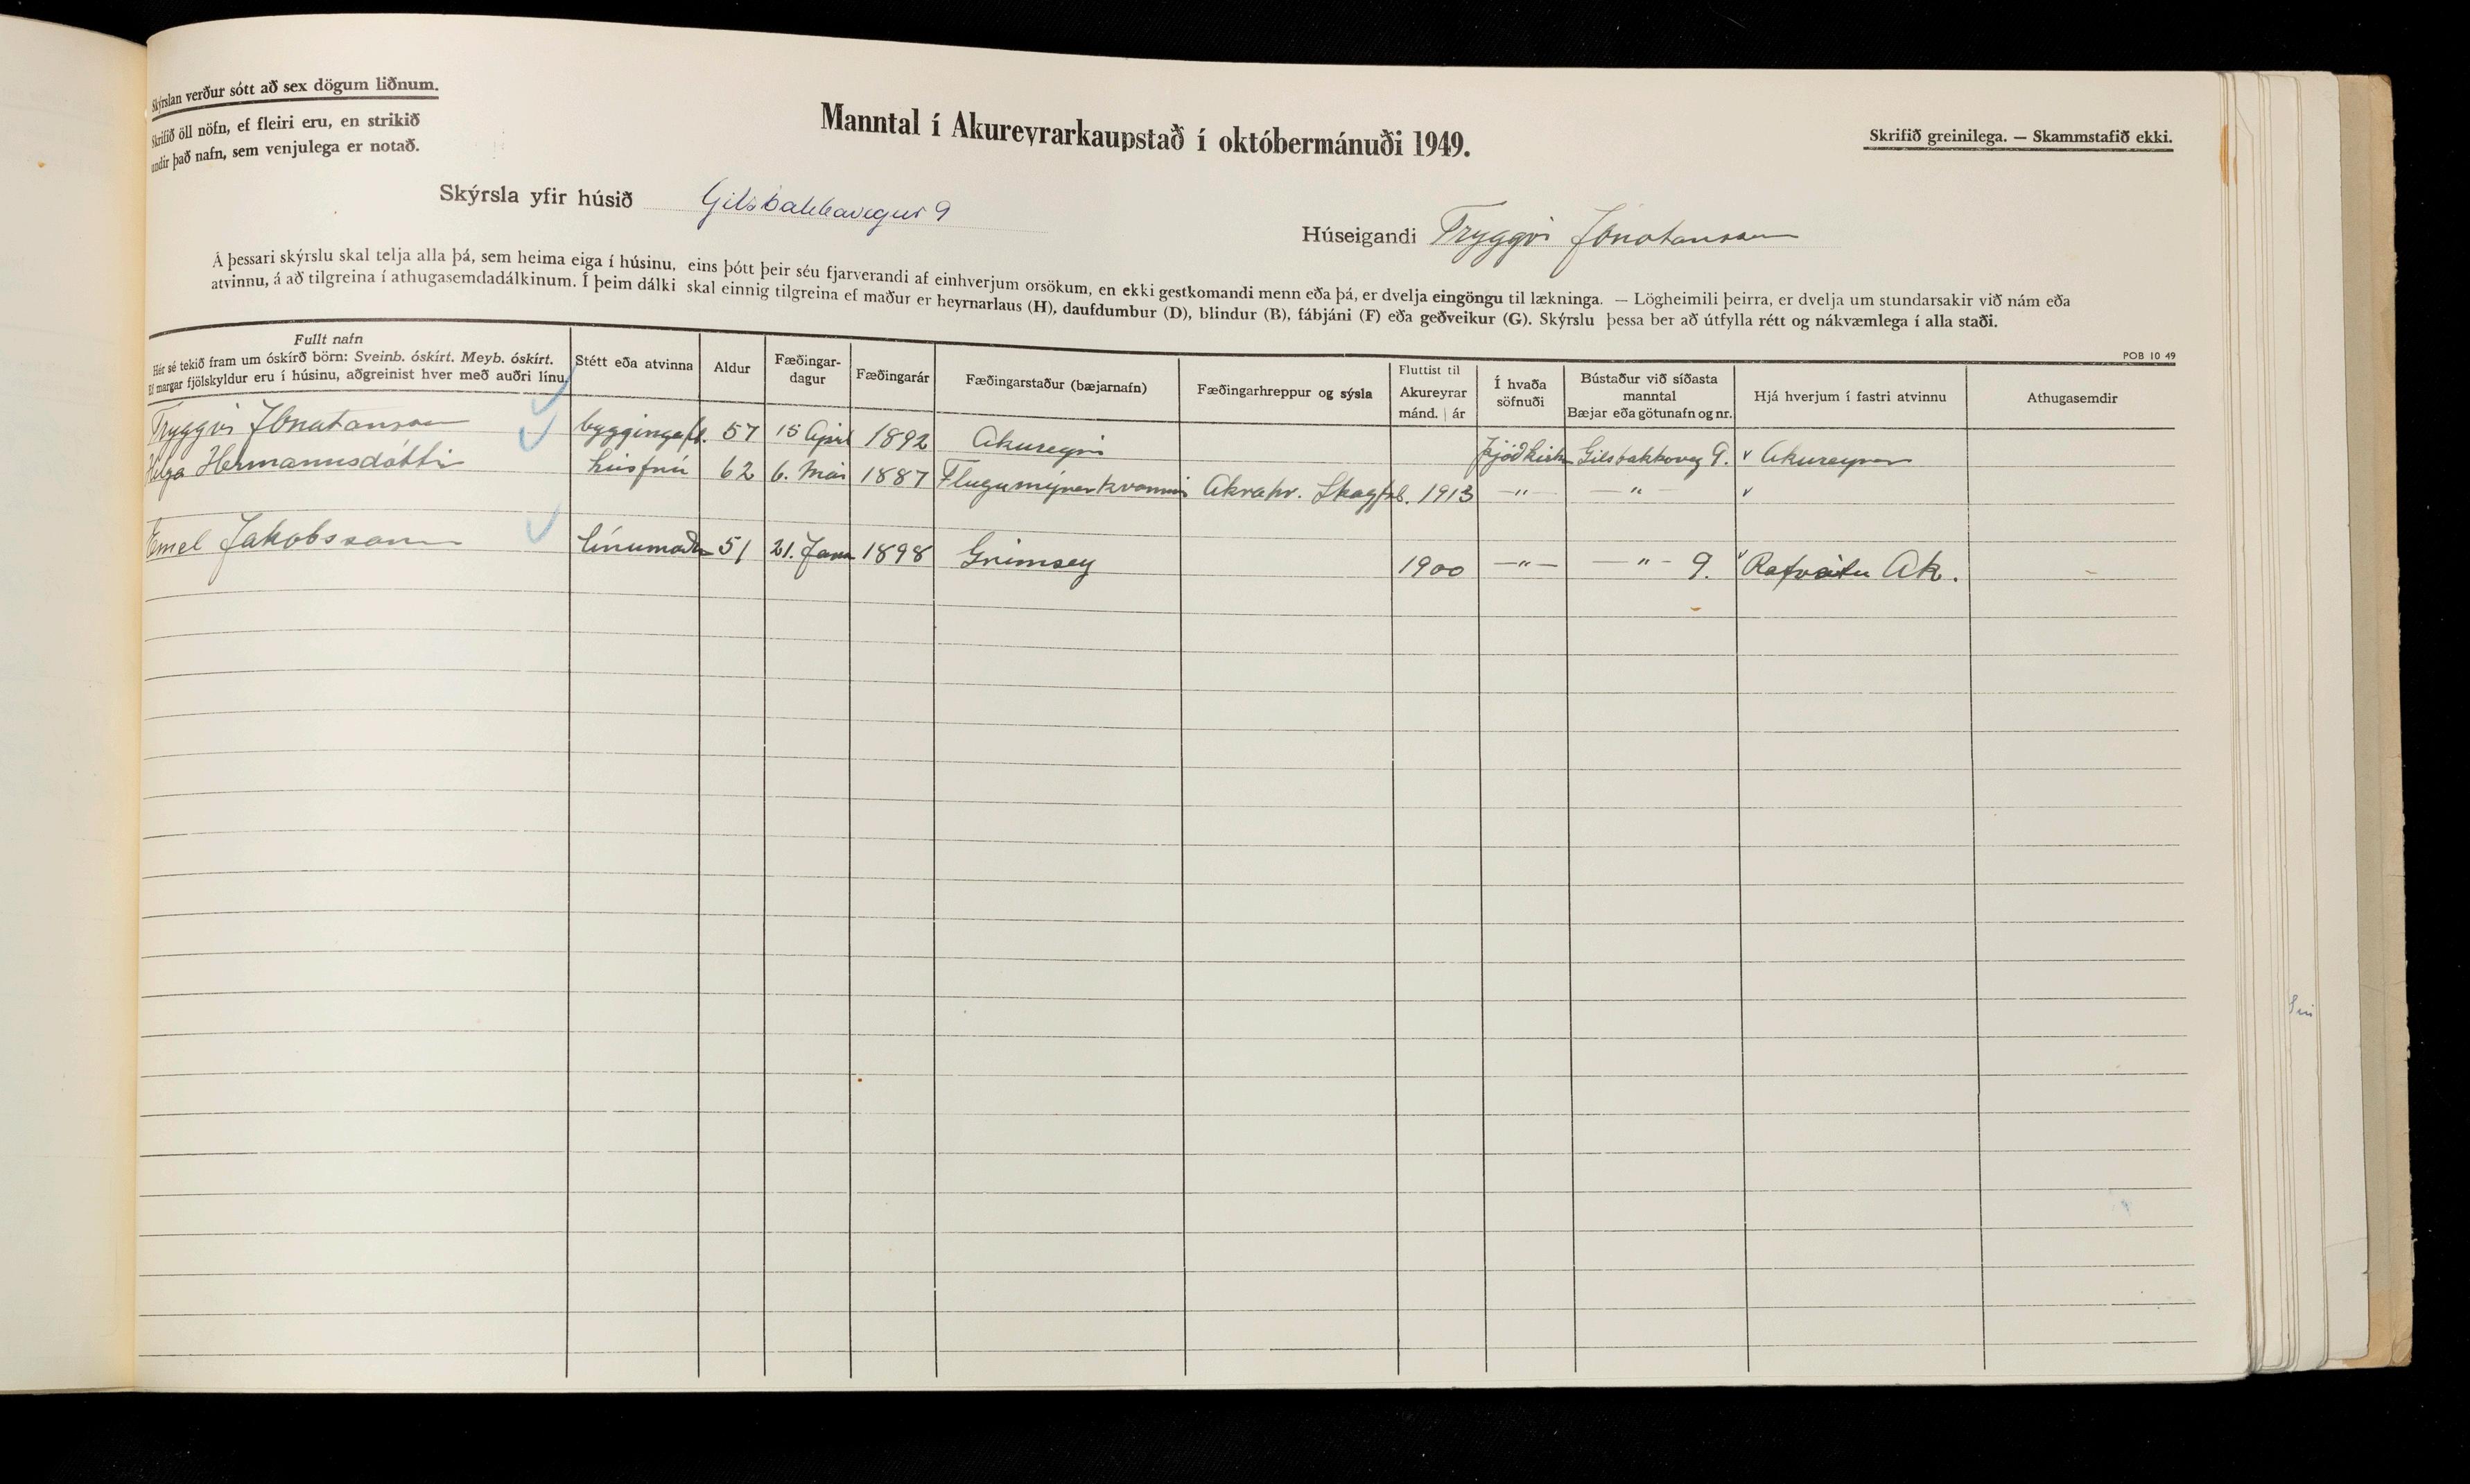 Skýrslan verður sótt að sex dögum liðnum.
Skrifið öll nöfn, ef fleiri eru, en strikið
undir það nafn, sem venjulega er notað.
Manntal í Akureyrarkaupstað í októbermánuði 1949.
Skrifið greinilega. — Skammstafið ekki.
Skýrsla yfir húsið Gilsbakkavegur 9
Húseigandi Tryggvi Jónatansson
Á þessari skýrslu skal telja alla þá, sem heima eiga í húsinu, eins þótt þeir séu fjarverandi af einhverjum orsökum, en ekki gestkomandi menn eða þá, er dvelja eingöngu til lækninga. — Lögheimili þeirra, er dvelja um stundarsakir við nám eða
atvinnu, á að tilgreina í athugasemdadálkinum. Í þeim dálki skal einnig tilgreina ef maður er heyrnarlaus (H), daufdumbur (D), blindur (B), fábjáni (F) eða geðveikur (G). Skýrslu þessa ber að útfylla rétt og nákvæmlega í alla staði.
POB 10 49
Fullt nafn
Hér sé tekið fram um óskírð börn: Sveinb. óskírt. Meyb. óskírt.
Ef margar fjölskyldur eru í húsinu, aðgreinist hver með auðri línu.
Stétt eða atvinna
Aldur
Fæðingar-
dagur
Fæðingarár
Fæðingarstaður (bæjarnafn)
Fæðingarhreppur og sýsla
Fluttist til
Akureyrar
mánd. | ár
Í hvaða
söfnuði
Bústaður við síðasta
manntal
Bæjar eða götunafn og nr.
Hjá hverjum í fastri atvinnu
Athugasemdir
Tryggvi Jónatansson byggingaf. 57 15 Apríl 1892 Akureyri Þjóðkirkju Gilsbakkaveg 9. v Akureyrar
Helga Hermannsdóttir húsfrú 62 6. Maí 1887 Flugumýrarhvammi Akrahr. Skagf. 1913 —"— —"— v
Emel Jakobsson línumaður 51 21. Janu 1898 Grímsey 1900 —"— —"— 9. v Rafveitu Ak. –